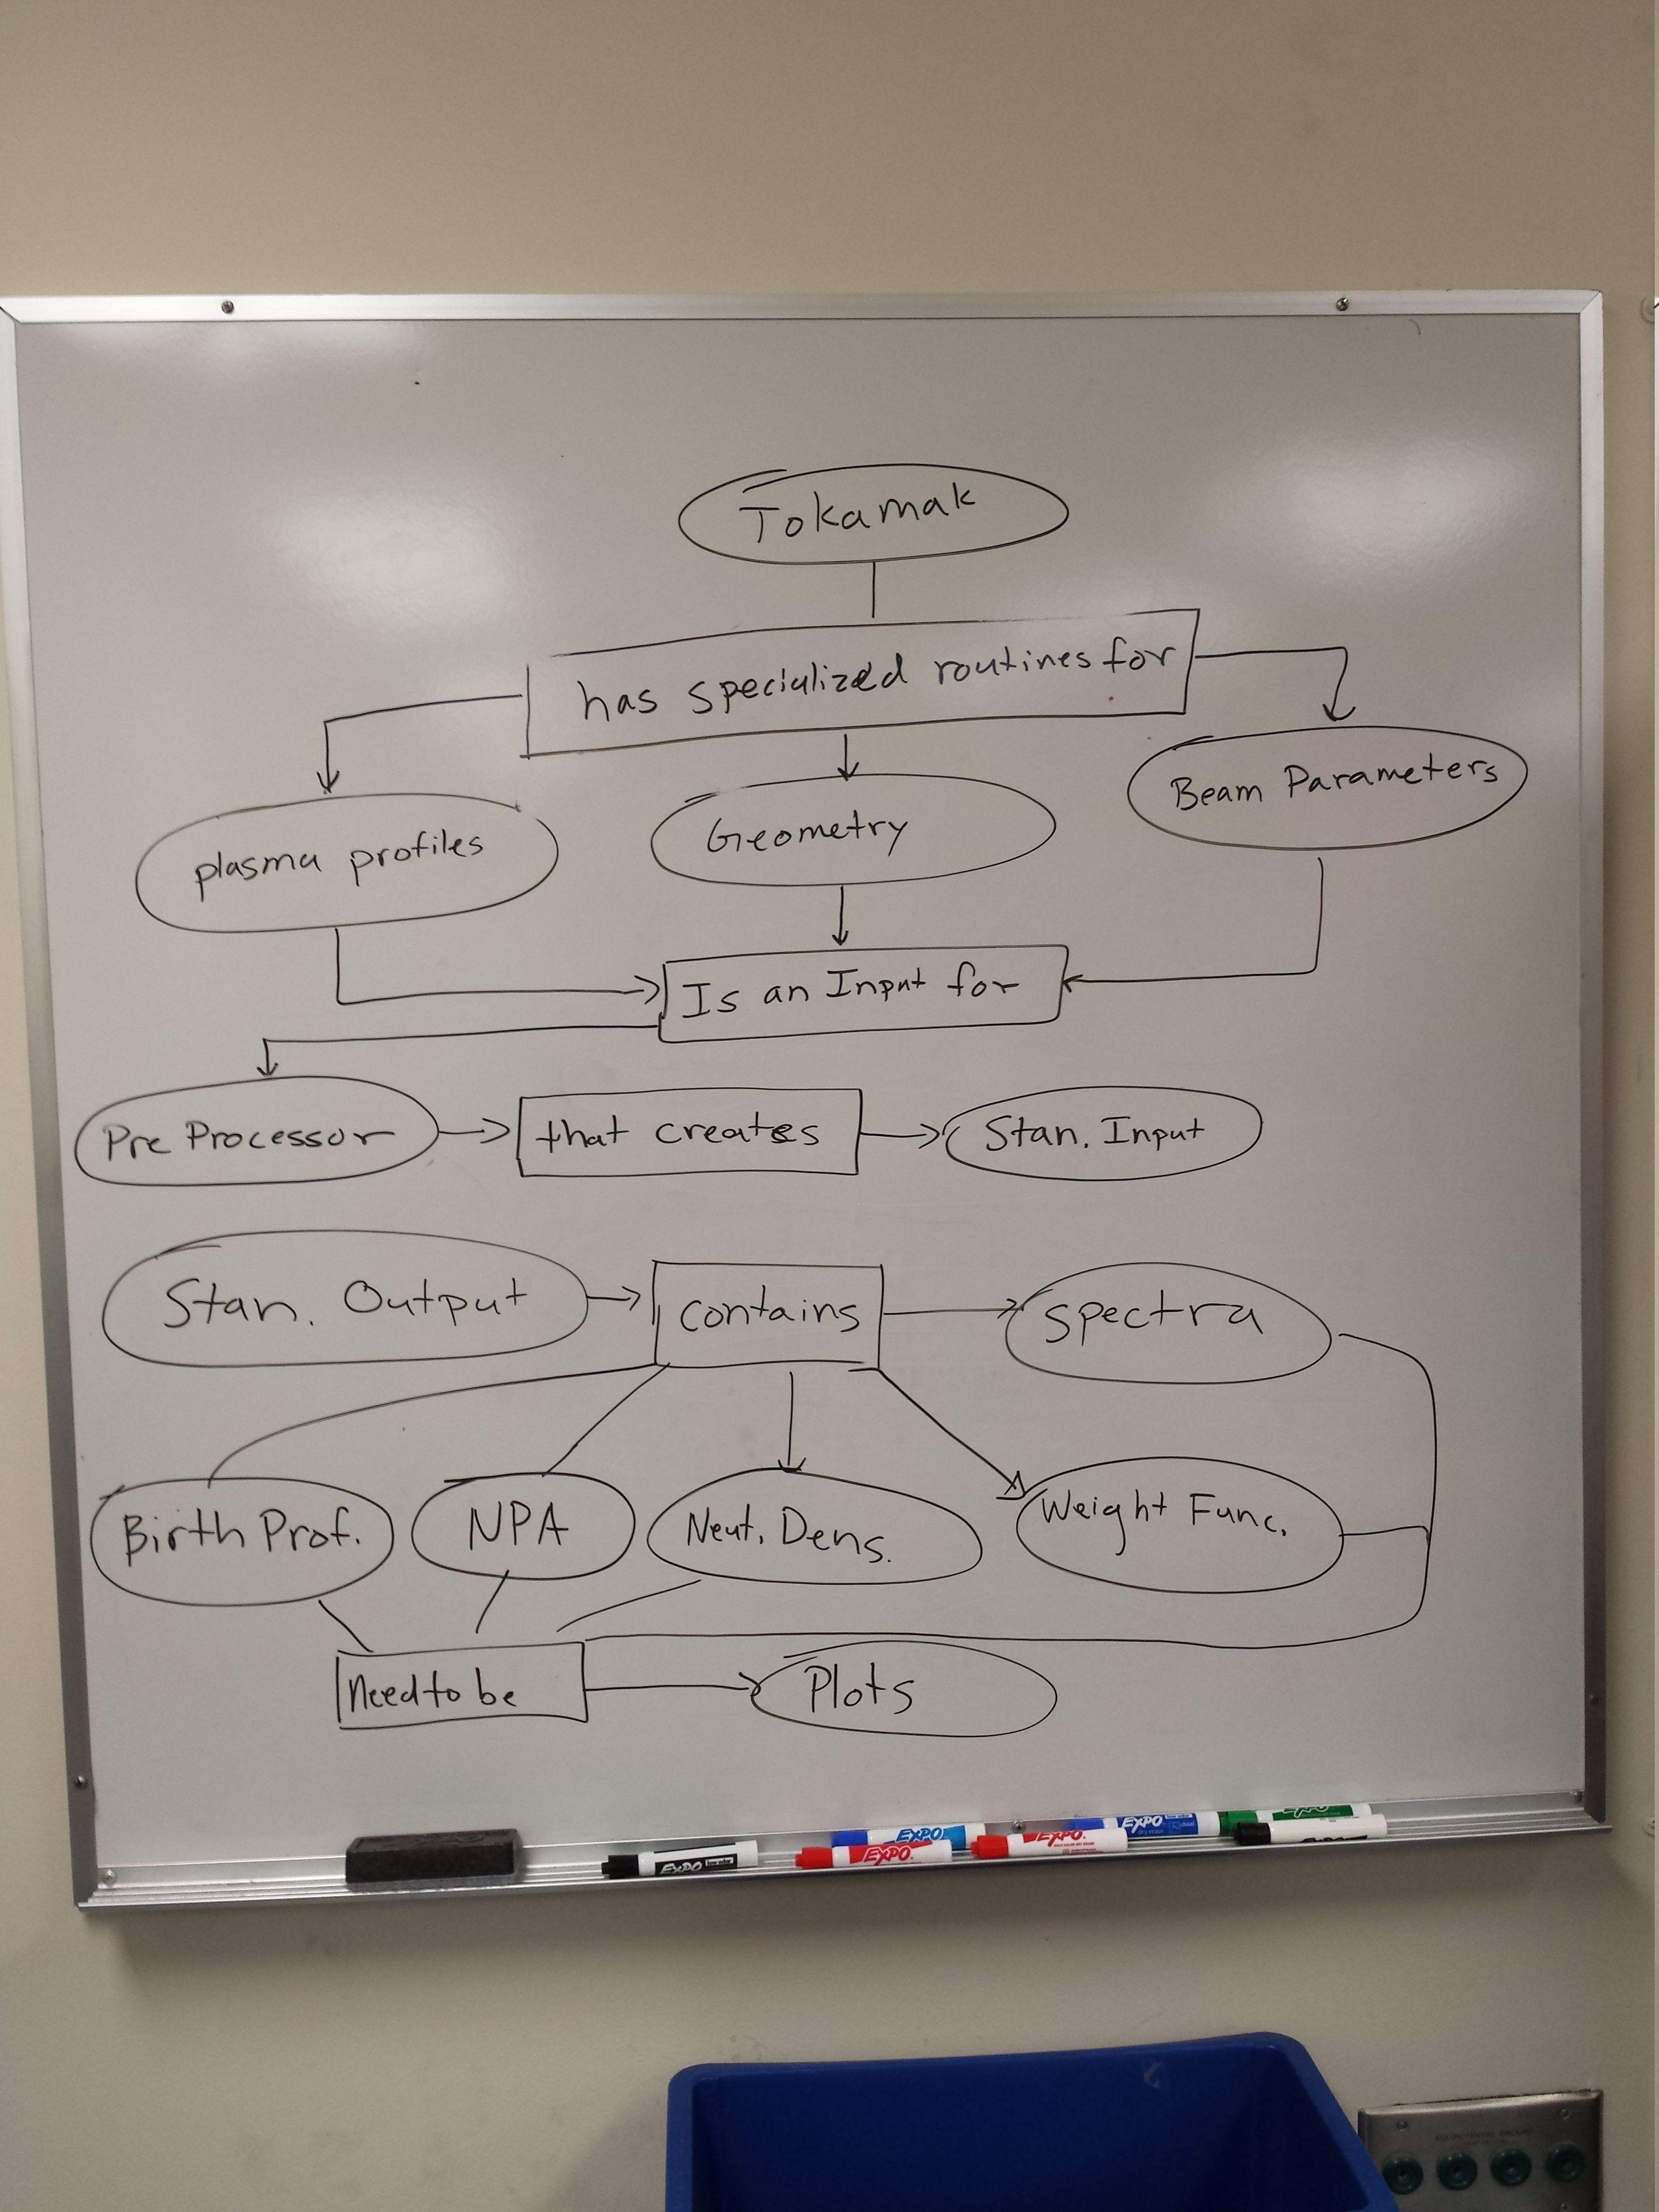 Tokamak
has specialized routines for
plasma profiles
Geometry
Beam Parameters
Is an Input for
Pre Processor
that creates
Stan. Input
Stan. Output
contains
spectra
Birth Prof.
NPA
Neut. Dens.
Weight Func.
Need to be
Plots
EXPO
EXPO
EXPO
EXPO
EXPO
EXPO